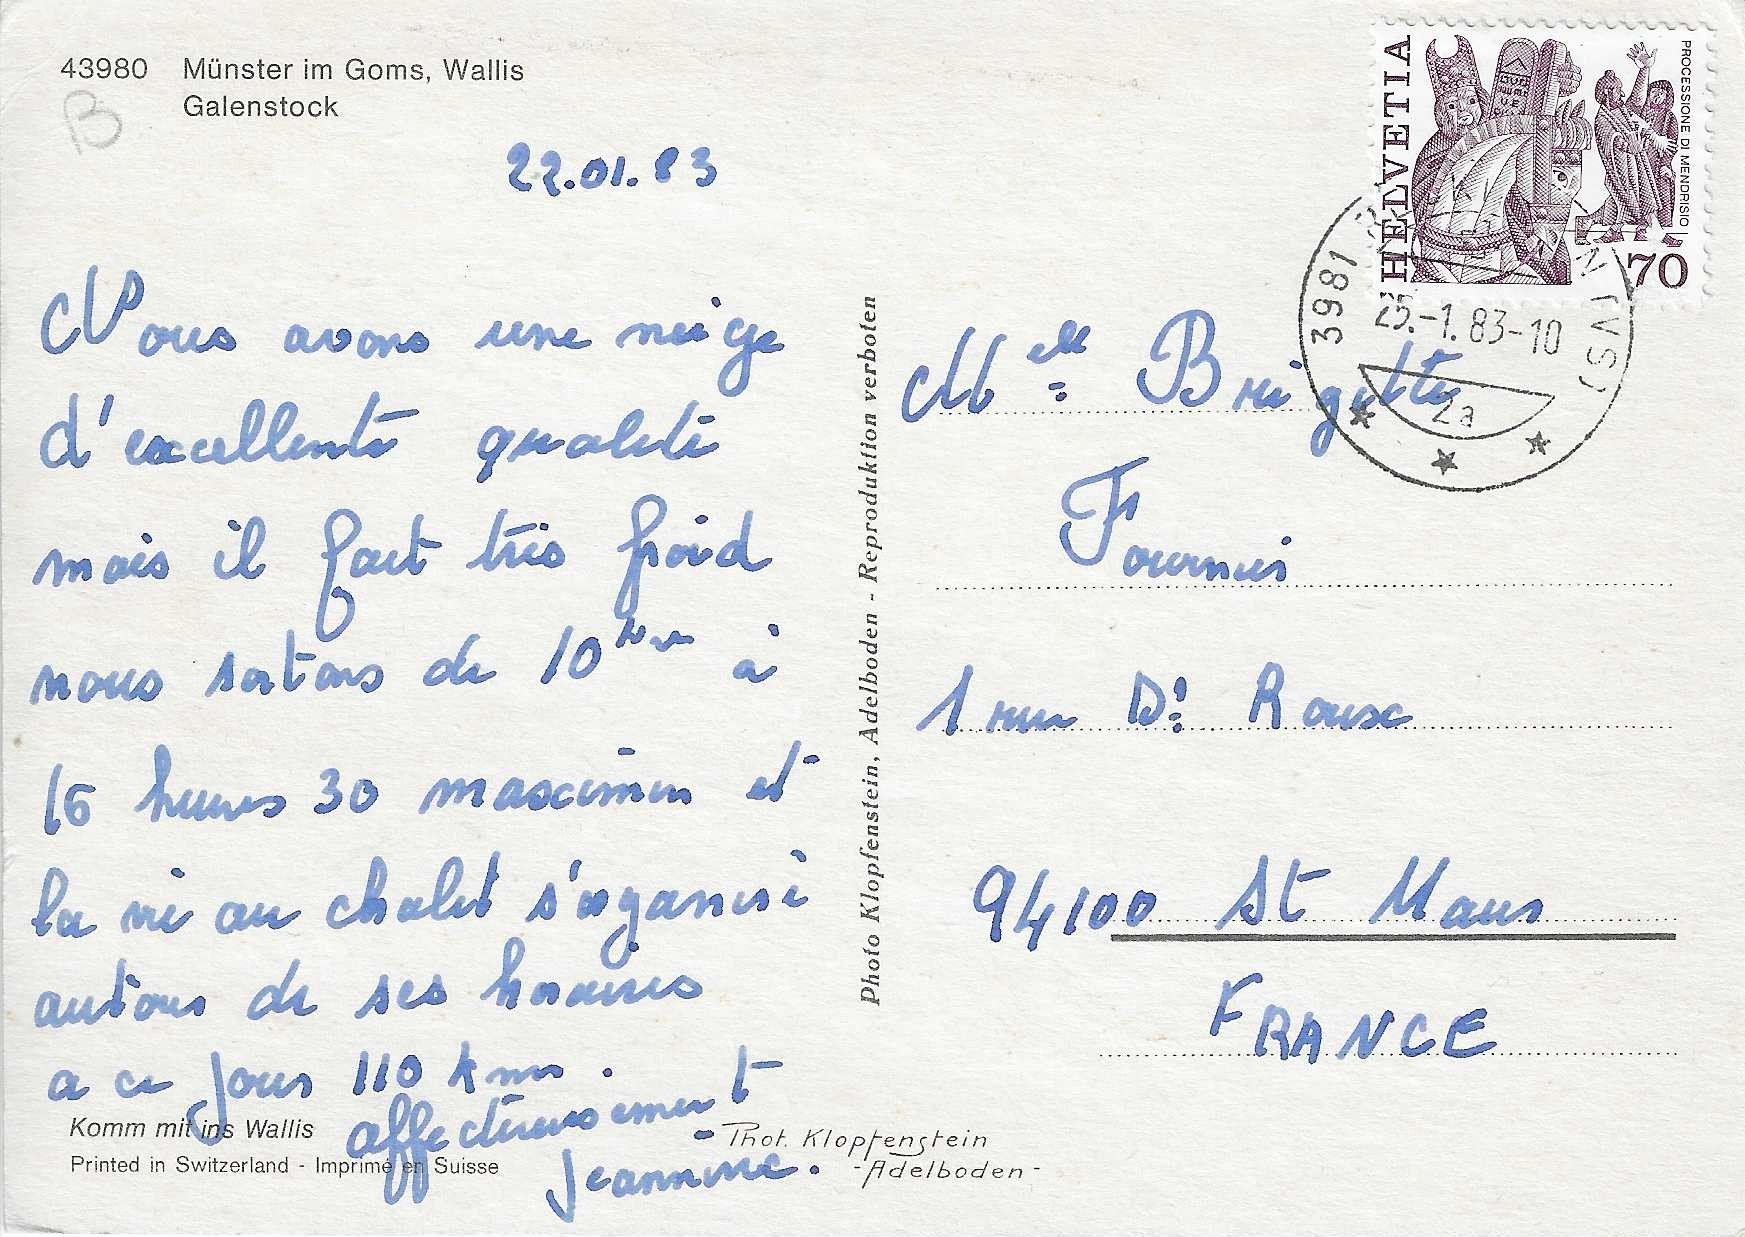 43980 Münster im Goms, Wallis
Galenstock
B
22.01.83
Nous avons une neige
d'excellente qualité
mais il fait très froid
nous sortons de 10 à
16 heures 30 maximum et
la vie au chalet s'organise
autour de ses horaires
a ce jour 110 kms.
affectueusement
Jeannine.
Komm mit ins Wallis
Printed in Switzerland - Imprimé en Suisse
- Phot. Klopfenstein
- Adelboden -
Photo Klopfenstein, Adelboden - Reproduktion verboten
HELVETIA
PROCESSIONE DI MENDRISIO
70
3981 (VS)
25.-1.83-10
2a
Melle Brigitte
Fournier
1 rue Dr Roux
94100 St Maur
FRANCE